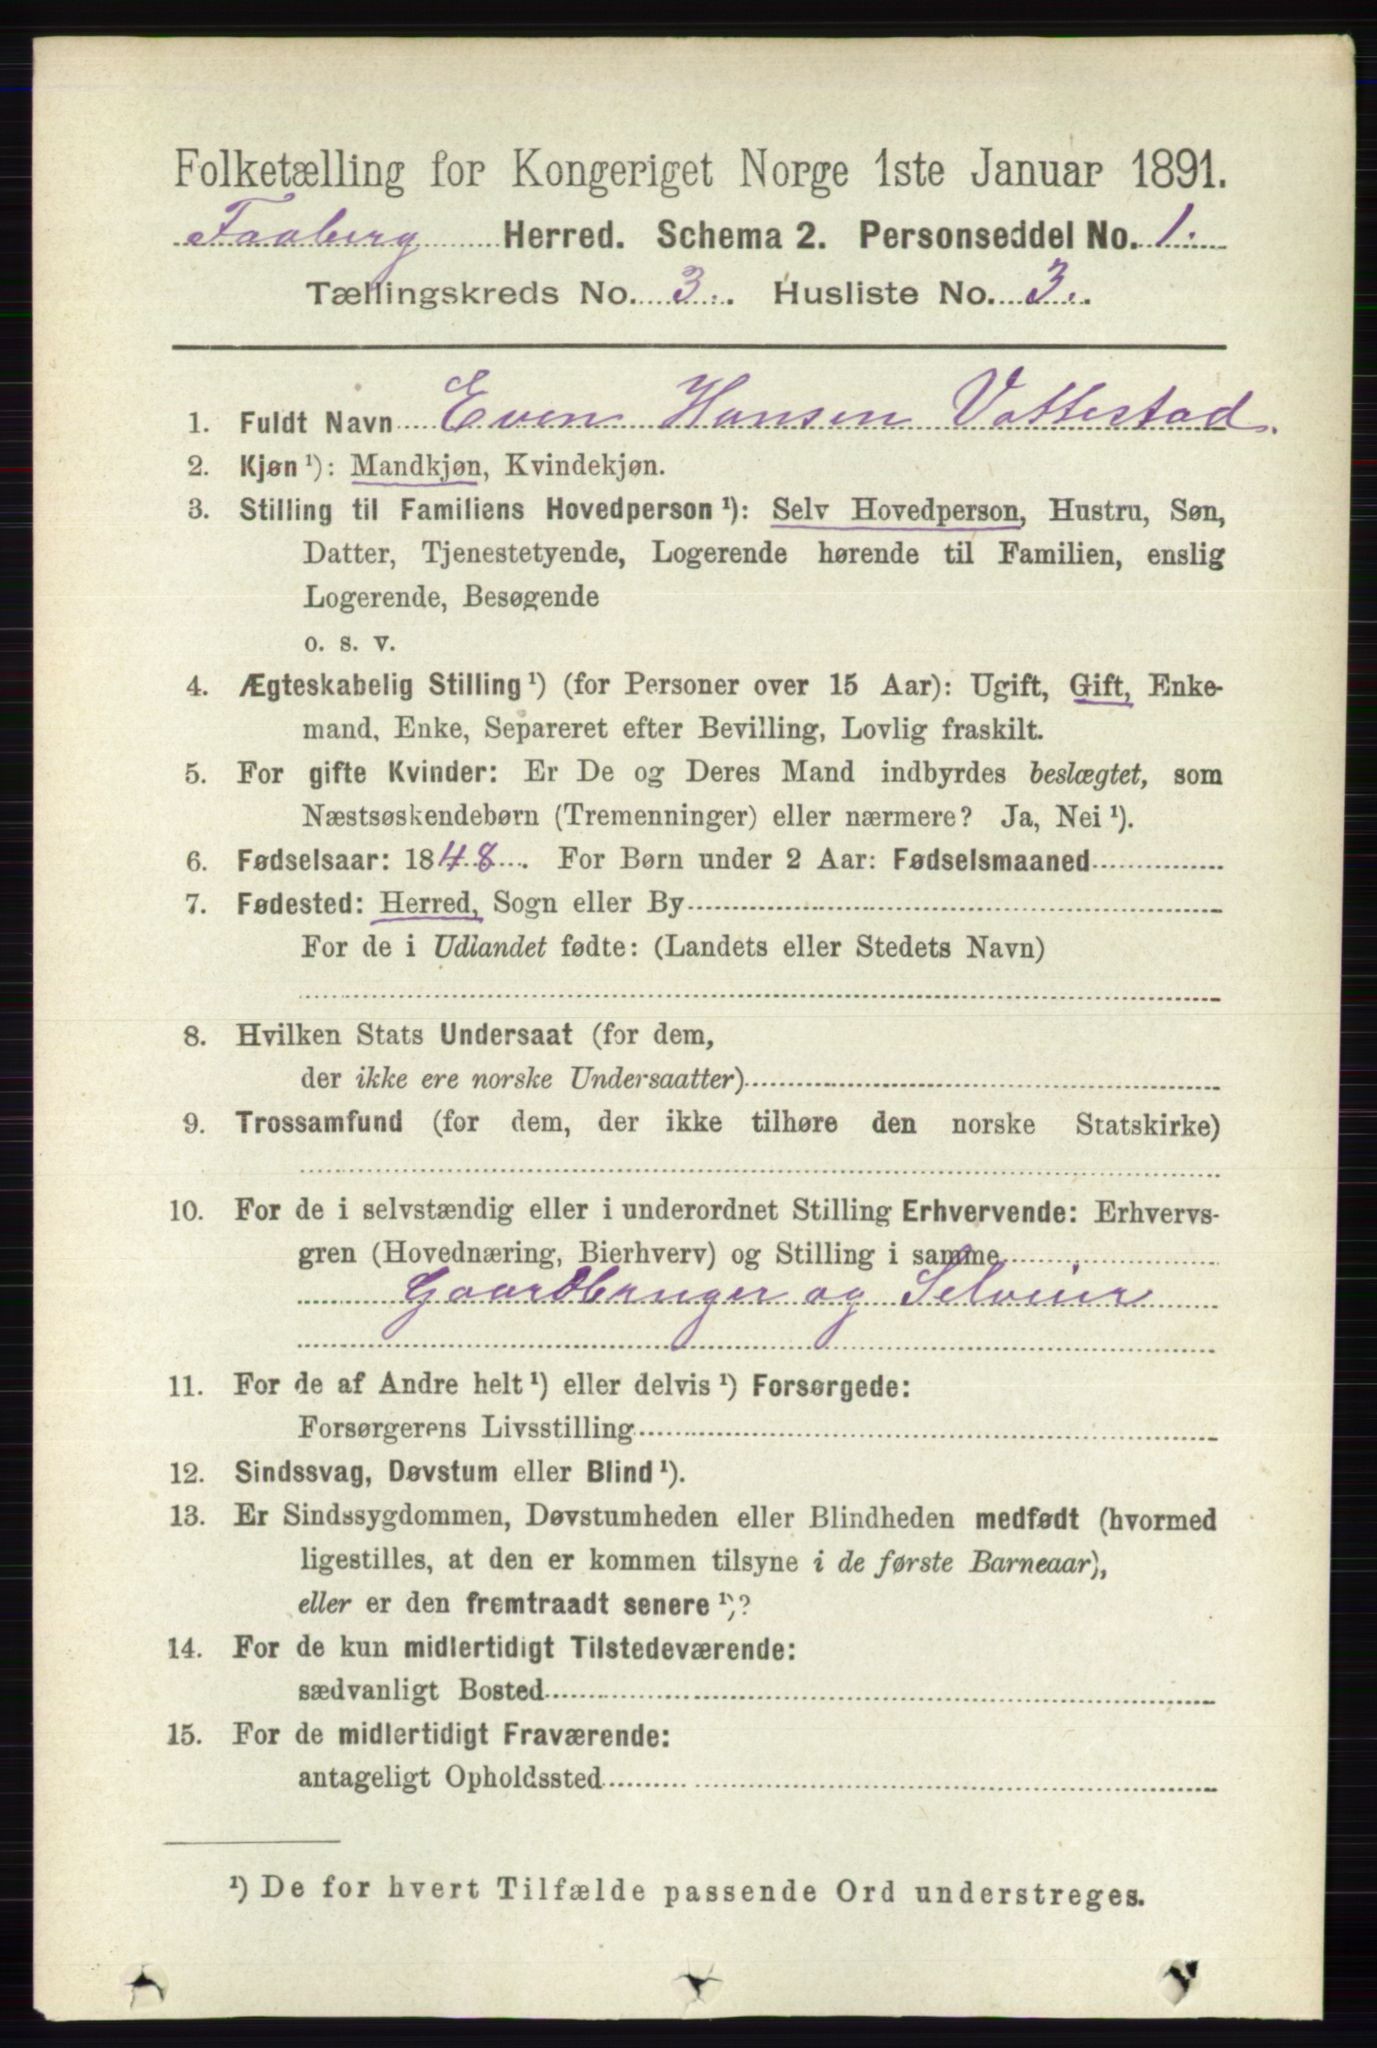 Folketælling for Kongeriget Norge 1ste Januar 1891.
Faaberg Herred. Schema 2. Personseddel No. 1.
Tællingskreds No. 3. Husliste No. 3.
1. Fuldt Navn Even Hansen Vottestad.
2. Kjøn ¹): Mandkjøn, Kvindekjøn.
3. Stilling til Familiens Hovedperson ¹): Selv Hovedperson, Hustru, Søn,
Datter, Tjenestetyende, Logerende hørende til Familien, enslig
Logerende, Besøgende
o. s. v.
4. Ægteskabelig Stilling ¹) (for Personer over 15 Aar): Ugift, Gift, Enke-
mand, Enke, Separeret efter Bevilling, Lovlig fraskilt.
5. For gifte Kvinder: Er De og Deres Mand indbyrdes beslægtet, som
Næstsøskendebørn (Tremenninger) eller nærmere? Ja, Nei ¹).
6. Fødselsaar: 1848. For Børn under 2 Aar: Fødselsmaaned
7. Fødested: Herred, Sogn eller By
For de i Udlandet fødte: (Landets eller Stedets Navn)
8. Hvilken Stats Undersaat (for dem,
der ikke ere norske Undersaatter)
9. Trossamfund (for dem, der ikke tilhøre den norske Statskirke)
10. For de i selvstændig eller i underordnet Stilling Erhvervende: Erhvervs-
gren (Hovednæring, Bierhverv) og Stilling i samme
Gaardbruger og Selveier
11. For de af Andre helt ¹) eller delvis ¹) Forsørgede:
Forsørgerens Livsstilling
12. Sindssvag, Døvstum eller Blind ¹).
13. Er Sindssygdommen, Døvstumheden eller Blindheden medfødt (hvormed
ligestilles, at den er kommen tilsyne i de første Barneaar),
eller er den fremtraadt senere ¹)?
14. For de kun midlertidigt Tilstedeværende:
sædvanligt Bosted
15. For de midlertidigt Fraværende:
antageligt Opholdssted
¹) De for hvert Tilfælde passende Ord understreges.